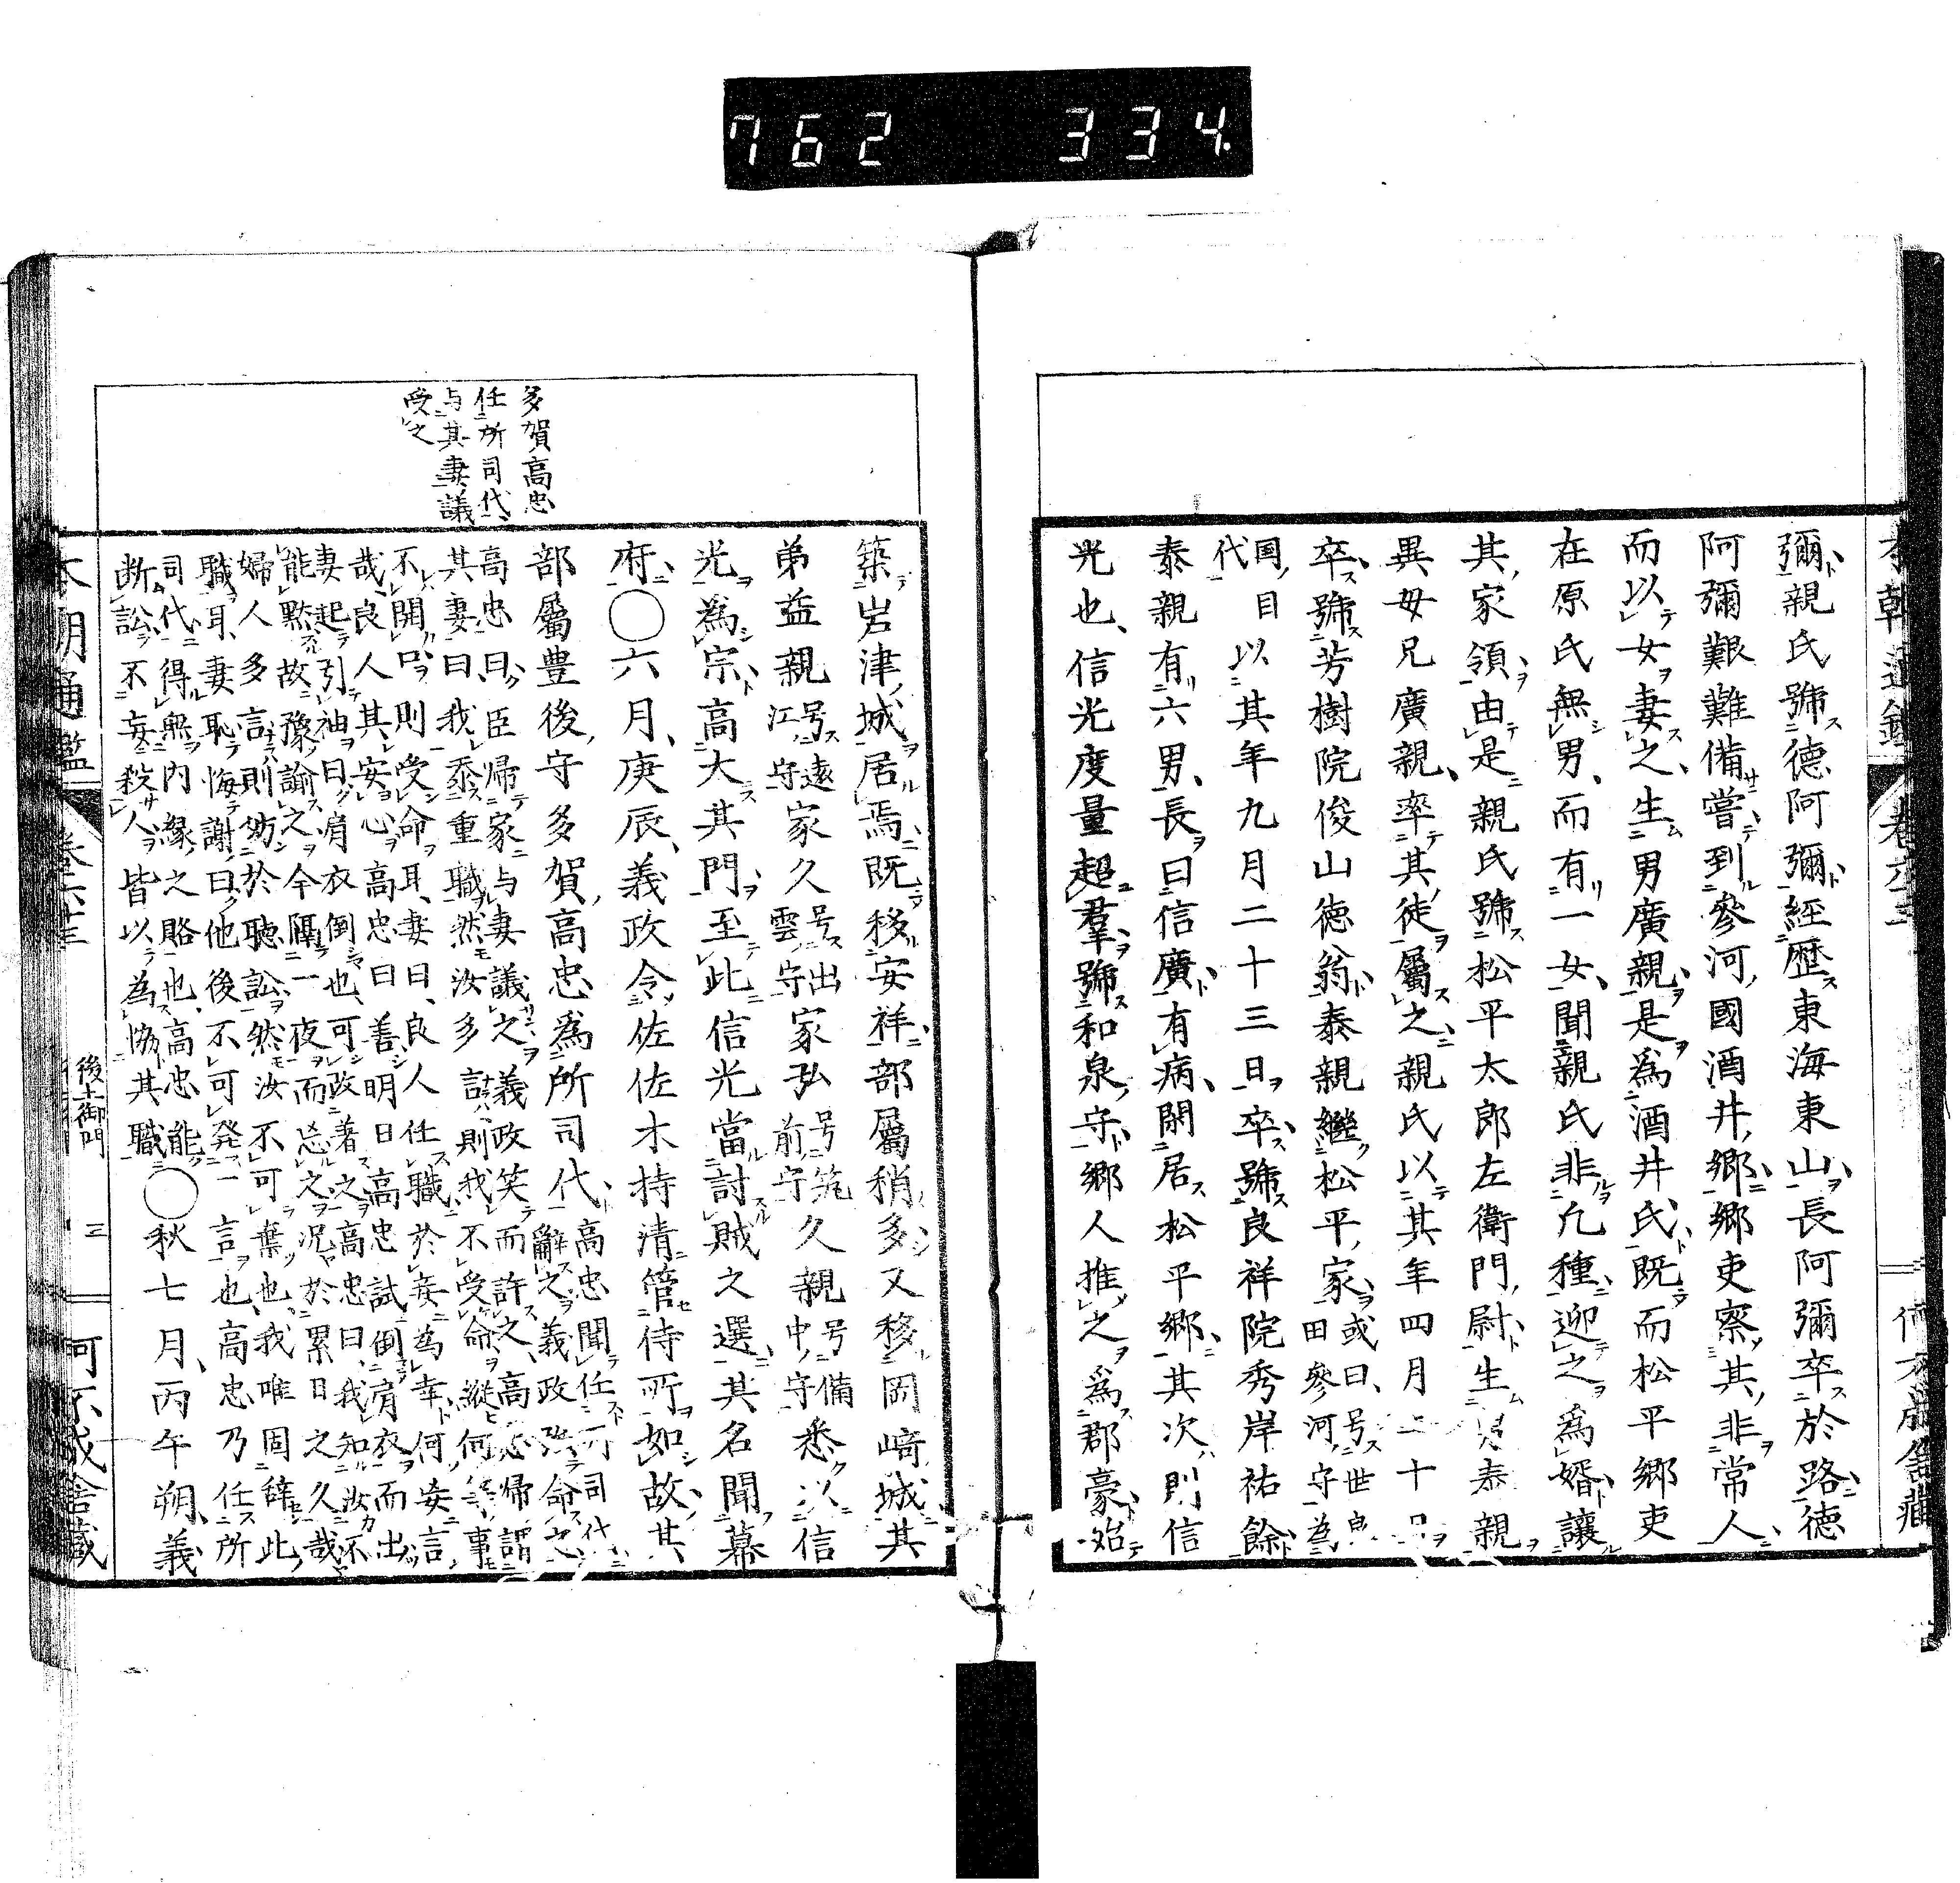 762 334.
本朝通鑑 卷六十三
彌親氏號德阿彌經歴東海東山長阿彌卒於路德
阿彌艱難備嘗到參河國酒井鄉鄉吏察其非常人
而以女妻之生男廣親是爲酒井氏既而松平鄉吏
在原氏無男而有一女聞親氏非凢種迎之爲婿讓
其家領由是親氏號松平太郎左衛門尉生泰親
異母兄廣親率其徒屬之親氏以其年四月二十日
卒號芳樹院俊山徳翁泰親繼松平家或曰号世良田參河守為
国目代以其年九月二十三日卒號良祥院秀岸祐餘
泰親有六男長曰信廣有病閑居松平鄉其次則信
光也信光度量超羣號和泉守鄉人推之爲郡豪始
築岩津城居焉既移安祥部屬稍多又移岡﨑城其
弟益親号遠江守家久号出雲守家弘号筑前守久親号備中守悉以信
光爲宗高大其門至此信光當討賊之選其名聞幕
府○六月庚辰義政令佐佐木持清管侍所如故其
部屬豊後守多賀高忠爲所司代高忠聞任所司代辭之義政強命之
高忠曰臣帰家与妻議之義政笑而許之高忠帰謂
其妻曰我忝重職然汝多言則我不受命縱何等事
不開口則受命耳妻曰良人任職於妾為幸何妄言
哉良人其安心高忠曰善明日高忠試倒肩衣而出
妻起引袖曰肩衣倒也可改著之高忠曰我知汝不
能黙故豫諭之今隔一夜而忘之况於累日之久哉
婦人多言則妨於聽訟然汝不可棄也我唯固辞此
職耳妻恥悔謝曰他後不可発一言也高忠乃任所
司代得無内縁之賂也高忠能
断訟不妄殺人皆以為協其職○秋七月丙午朔義
多賀高忠
任所司代
与其妻議
受之
本朝通鑑 卷六十三 後土御門 三